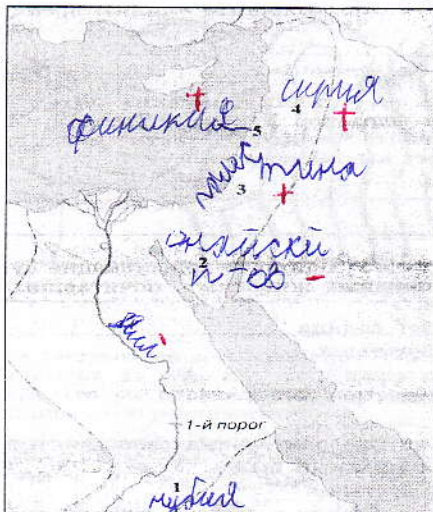 сирия
4
финикия
5
палестина
3
2
п-ов
Нил
1-й порог
1
нубия